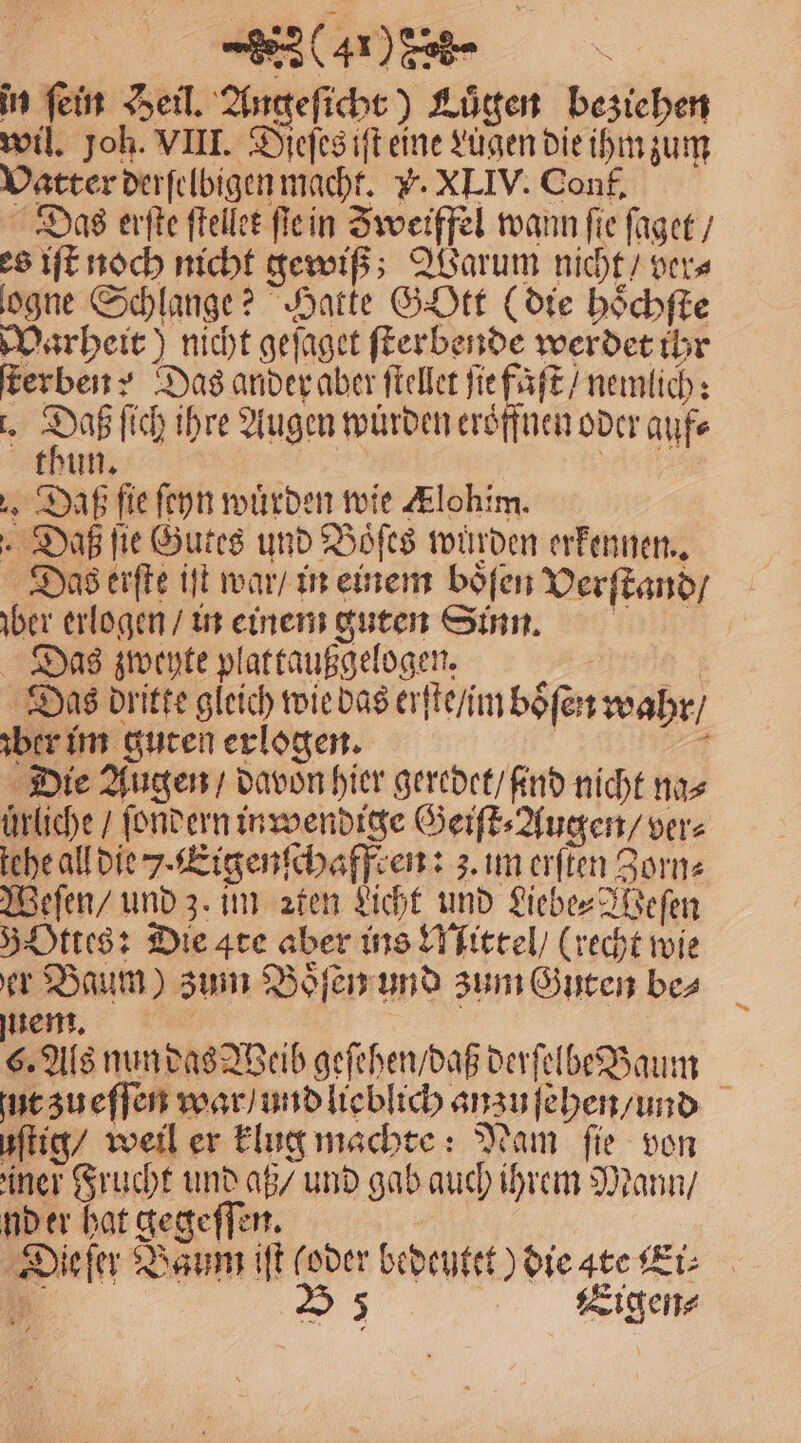 (41)
in ſein Heil. Angeſicht) Luͤgen beziehen
wil. Joh. VIII. Dieſes iſt eine Luͤgen die ihm zum
Vatter derſelbigen macht. ꝟ. XLIV. Conf.
Das erſte ſtellet ſie in Zweiffel wann ſie ſaget /
es iſt noch nicht gewiß; Warum nicht / ver⸗
logne Schlange? Hatte GOtt (die hoͤchſte
Warheit) nicht geſaget ſterbende werdet ihr
ſterben? Das ander aber ſtellet ſie faͤſt / nemlich:
1. Daß ſich ihre Augen wuͤrden eroͤffnen oder auf⸗
thun.
2. Daß ſie ſeyn wuͤrden wie Ælohim.
Daß ſie Gutes und Boͤſes wuͤrden erkennen.
Das erſte iſt war / in einem boͤſen Verſtand /
aber erlogen / in einem guten Sinn.
Das zweyte platt außgelogen.
Das dritte gleich wie das erſte / im boͤſen wahr /
aber im guten erlogen.
Die Augen / davon hier geredet / ſind nicht na⸗
uͤrliche / ſondern inwendige Geiſt⸗Augen / ver⸗
ſtehe all die 7. Eigenſchafften: 3. im erſten Zorn⸗
Weſen / und 3. im 2ten Licht und Liebe⸗Weſen
GOttes: Die 4te aber ins Mittel / (recht wie
der Baum) zum Boͤſen und zum Guten be⸗
quem.
6. Als nun das Weib geſehen / daß derſelbe Baum
gut zu eſſen war / und lieblich anzuſehen / und
uſtig / weil er klug machte: Nam ſie von
einer Frucht und aß / und gab auch ihrem Mann /
und er hat gegeſſen.
Dieſer Baum iſt (oder bedeutet) die 4te Ei⸗
B 5 Eigen⸗